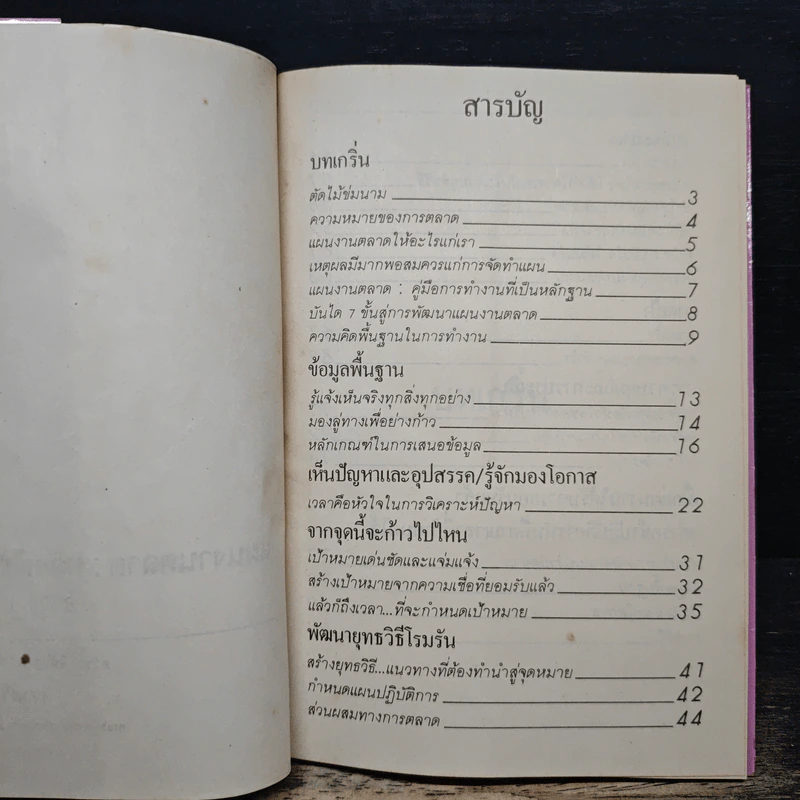 สารบัญ
บทเกริ่น
ตัดไม้ข่มนาม 3
ความหมายของการตลาด 4
แผนงานตลาดให้อะไรแก่เรา 5
เหตุผลมีมากพอสมควรแก่การจัดทำแผน 6
แผนงานตลาด : คู่มือการทำงานที่เป็นหลักฐาน 7
บันได 7 ขั้นสู่การพัฒนาแผนงานตลาด 8
ความคิดพื้นฐานในการทำงาน 9
ข้อมูลพื้นฐาน
รู้แจ้งเห็นจริงทุกสิ่งทุกอย่าง 13
มองลู่ทางเพื่อย่างก้าว 14
หลักเกณฑ์ในการเสนอข้อมูล 16
เห็นปัญหาและอุปสรรค/รู้จักมองโอกาส
เวลาคือหัวใจในการวิเคราะห์ปัญหา 22
จากจุดนี้จะก้าวไปไหน
เป้าหมายเด่นชัดและแจ่มแจ้ง 31
สร้างเป้าหมายจากความเชื่อที่ยอมรับแล้ว 32
แล้วก็ถึงเวลา...ที่จะกำหนดเป้าหมาย 35
พัฒนายุทธวิธีโรมรัน
สร้างยุทธวิธี...แนวทางที่ต้องทำนำสู่จุดหมาย 41
กำหนดแผนปฏิบัติการ 42
ส่วนผสมทางการตลาด 44